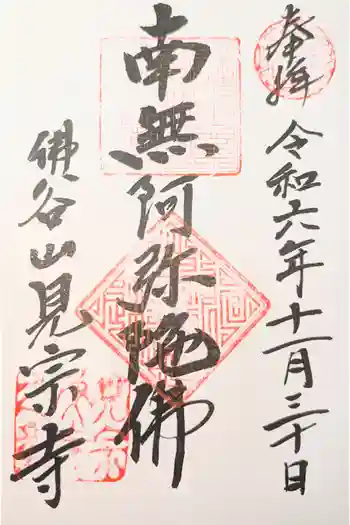 奉拝
令和六年十一月三十日
南無阿弥陀佛
佛谷山見宗寺